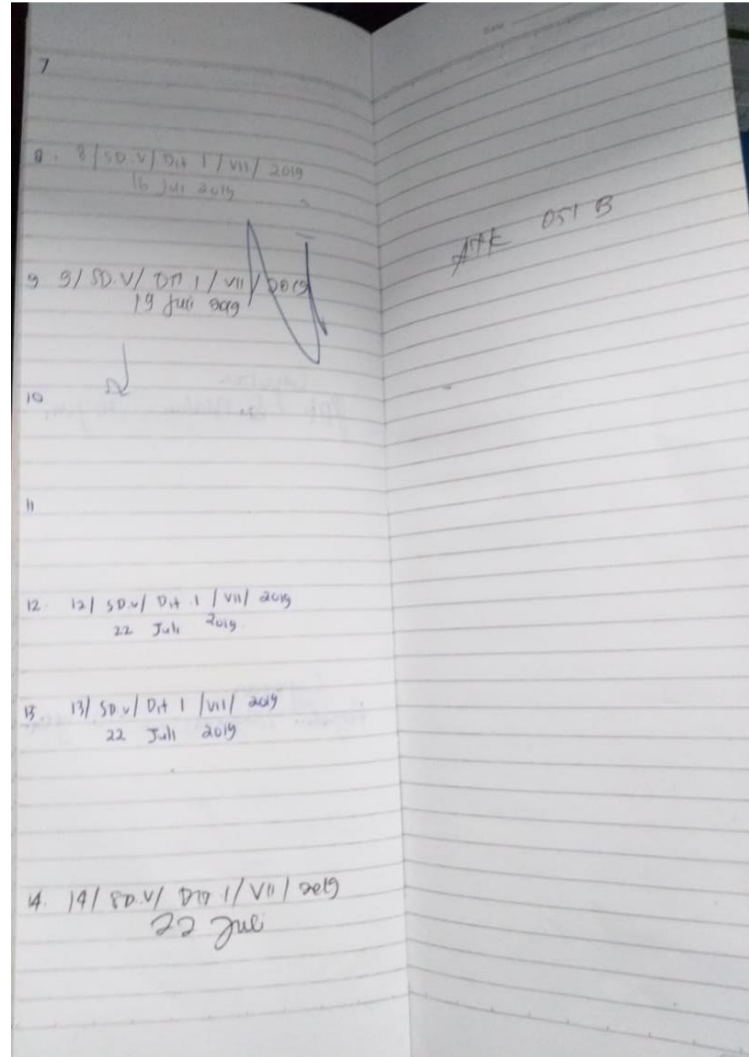 7
8. 8/SD.V/Dit 1/VII/2019
16 Juli 2019
9 9/SD.V/DIT 1/VII/2019
19 Juli 2019
10
11
12. 12/SD.V/Dit.1/VII/2019
22 Juli 2019.
13 13/SD.V/Dit 1/VII/2019
22 Juli 2019
14. 14/SD.V/DIT 1/VII/2019
22 Juli
Date
ATK 051 B